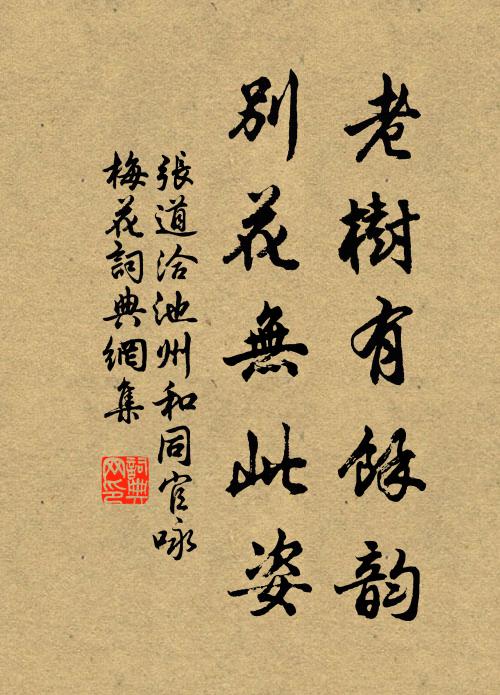 老樹有餘韵
別花無此姿
張道洽池州和同官咏
梅花詞典網集
詞典
网印